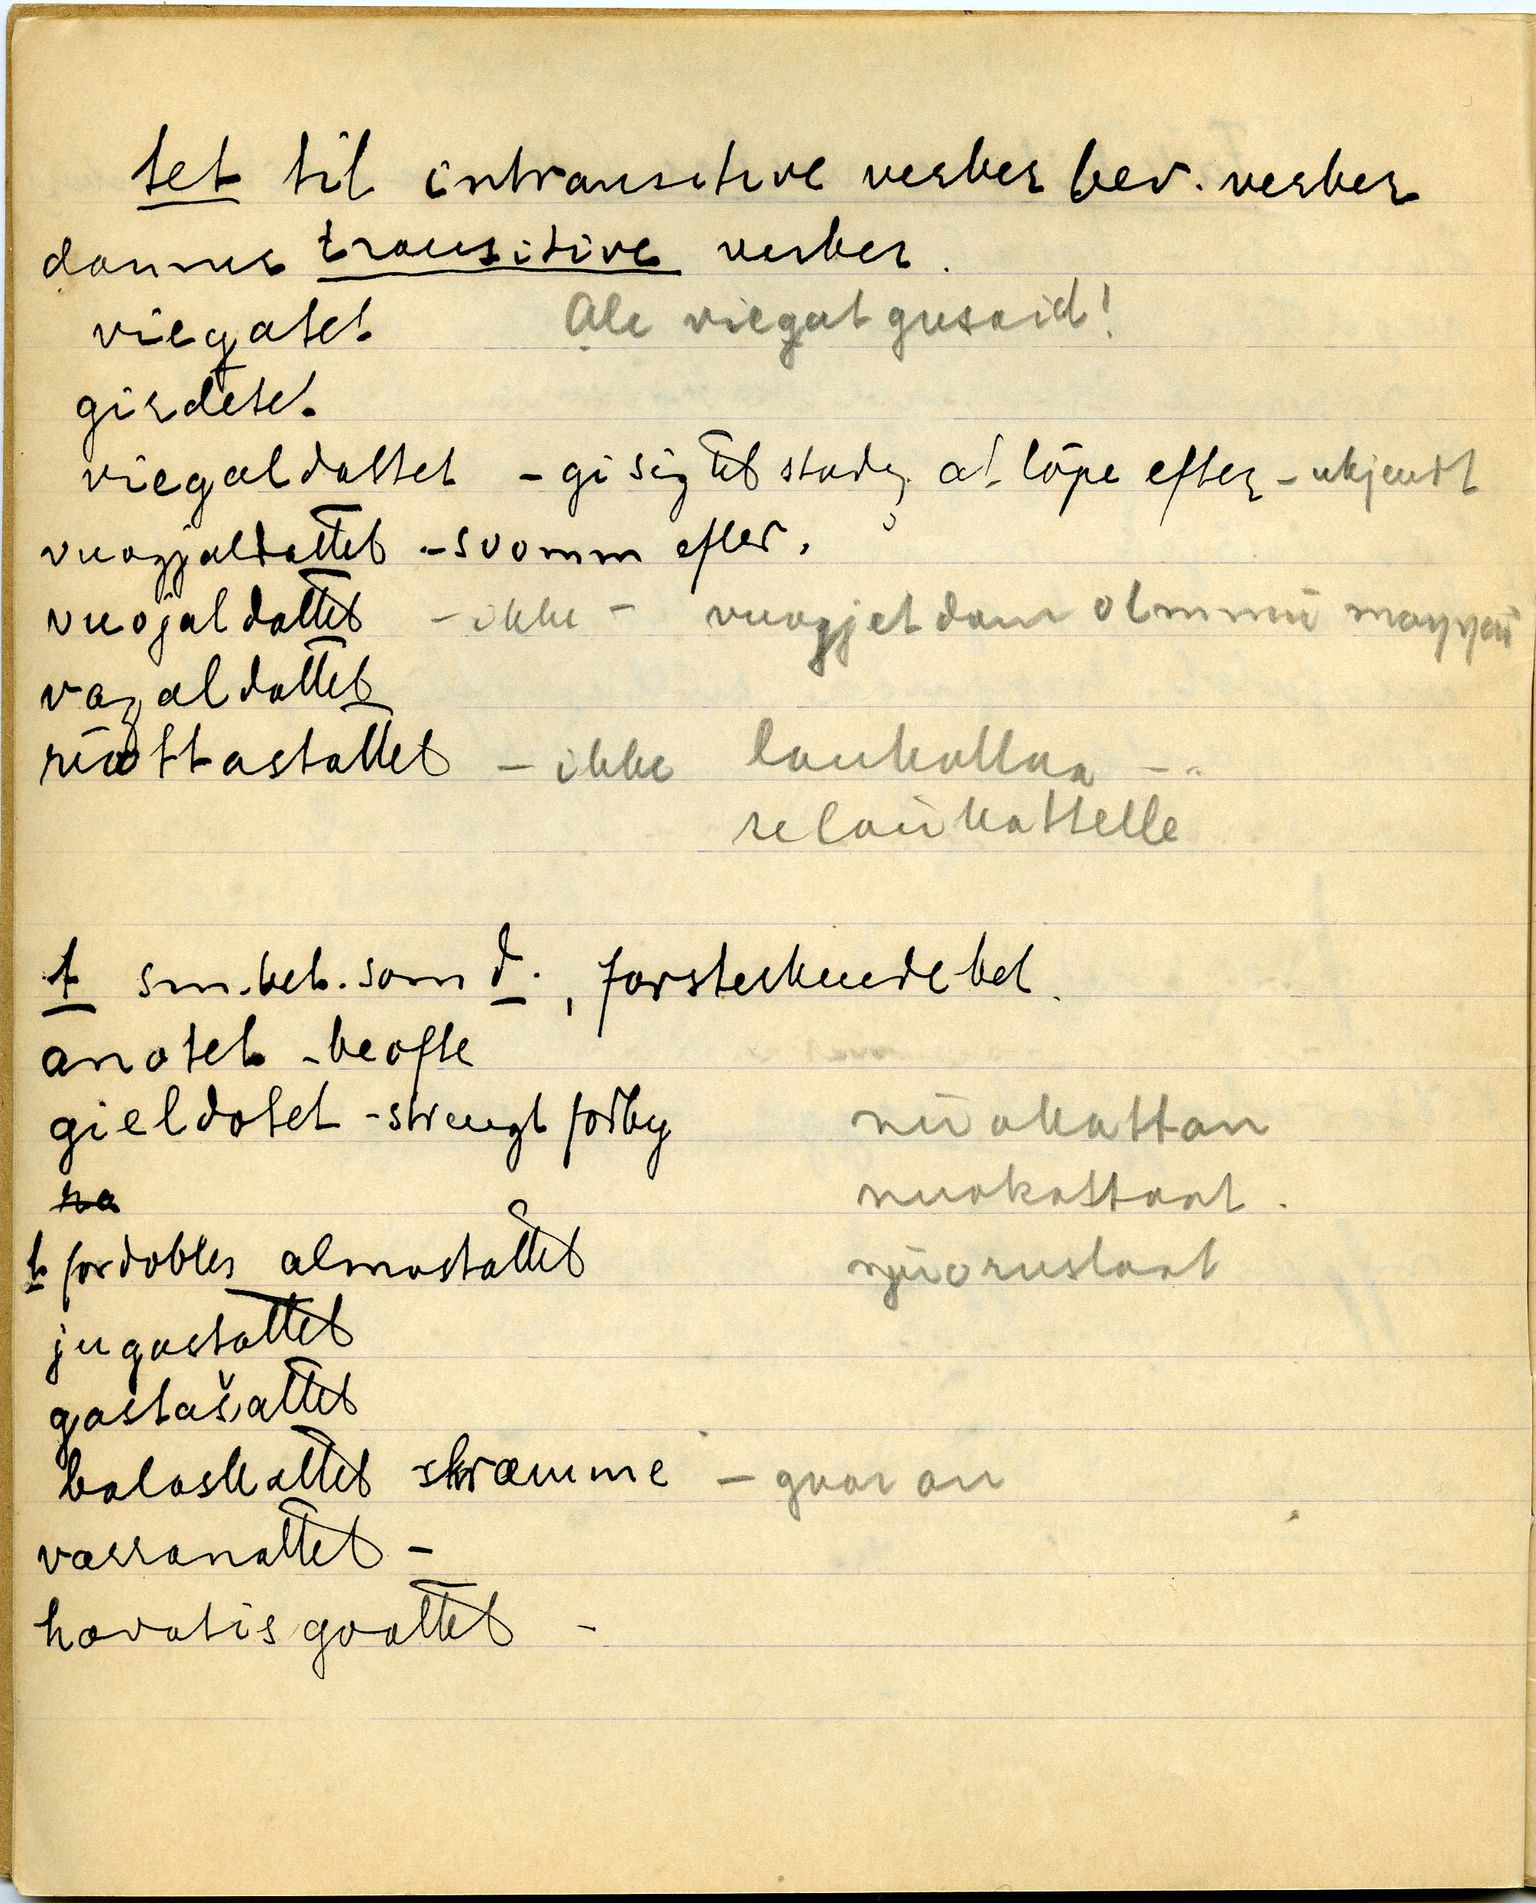 tet til intransitive verber bev. verber
danner transitive verber.
viegatet Ale viegat gusaid!
girdetet.
viegaldattet - gi sig til stadig at löpe efter - ukjendt
vuogjaldattet - svömm efter.
vuojaldattet - ikke - vuogjet dam olmmu maŋŋai
vazaldattet
riattastattet - ikke laukattaa -
selaukattelle
t sm. bet. som d., forsterkende bet.
anotet - be ofte
gieldotet - strengt forby nuokattan
na nuokattaat.
t fordobles almostattet njuorustaat
jugastattet
gastašattet
balaskattet skræmme - guoran
varranattet -
havatisgoattet -